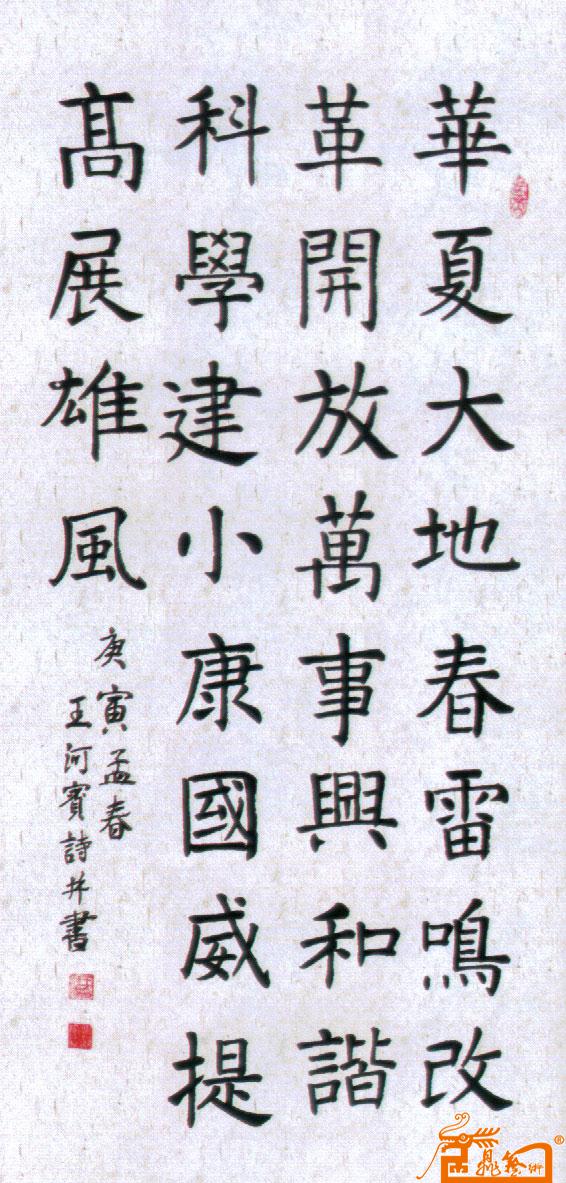 華夏大地春雷鳴改
革開放萬事興和諧
科學建小康國威提
髙展雄風
庚寅孟春
王河賓詩并書